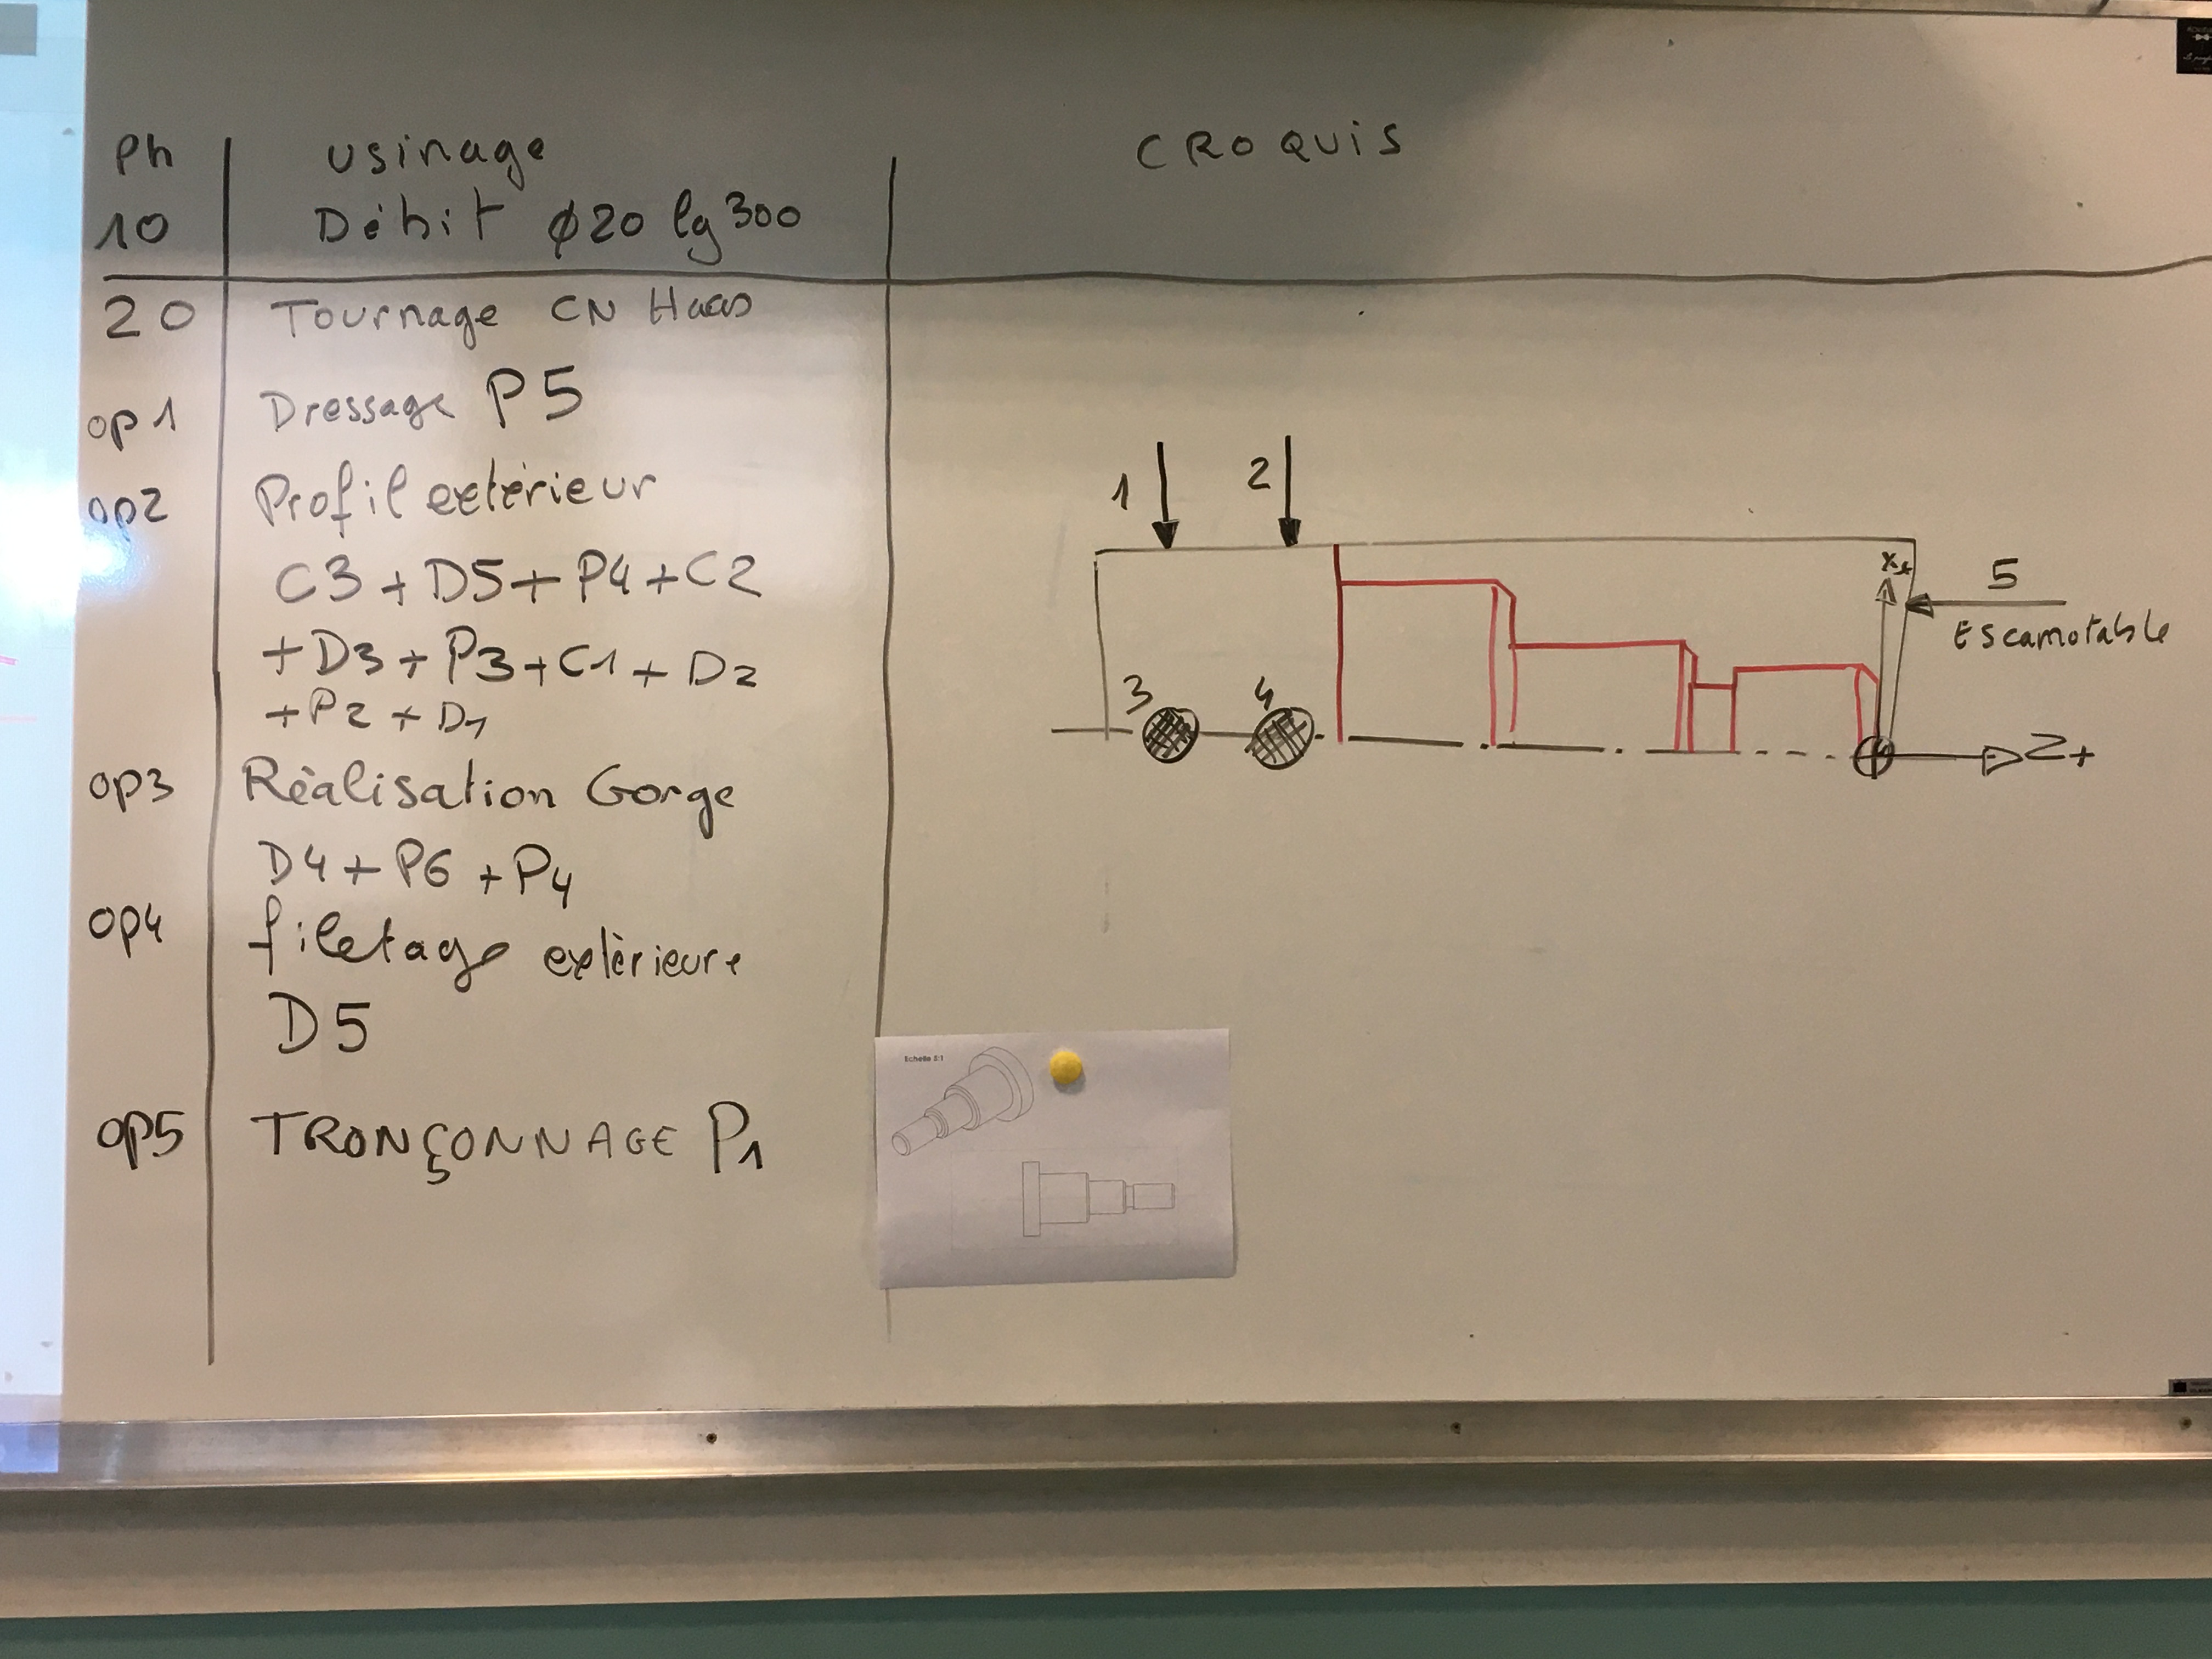 Ph usinage CROQUIS
10 Débit ø20 lg 300
20 Tournage CN Haas
op1 Dressage P5
op2 Profil extérieur
C3 + D5 + P4 + C2
+ D3 + P3 + C1 + D2
+ P2 + D1
op3 Réalisation Gorge
D4 + P6 + P4
op4 filetage extèrieure
D5
op5 TRONÇONNAGE P1
1 2
X+
5
Escamotable
3 4
Z+
Echelle 5:1